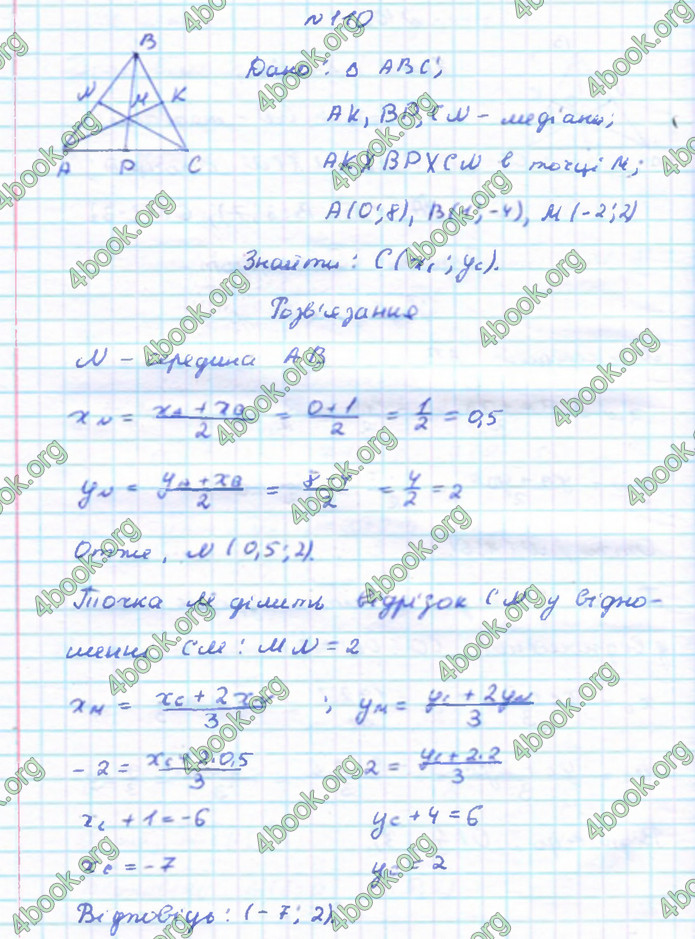 №110
B
Дано: Δ ABC;
N M K
AK, BP, CN – медіани;
A P C
AK X BP X CN в точці M;
A(0;8), B(1;-4), M(-2;2)
Знайти: C(xc; yc).
Розв'язання
N – середина AB
xN = xA + xB / 2 = 0+1 / 2 = 1/2 = 0,5
yN = yA + xB / 2 = 8 / 2 = 4/2 = 2
Отже, N(0,5; 2).
Точка M ділить відрізок CN у відно-
шенні CM : MN = 2
xM = xc + 2x / 3 ; yM = yc + 2yN / 3
-2 = xc + 2·0,5 / 3 2 = yc + 2·2 / 3
xc + 1 = -6 yc + 4 = 6
xc = -7 yc = 2
Відповідь: (-7; 2).
4book.org